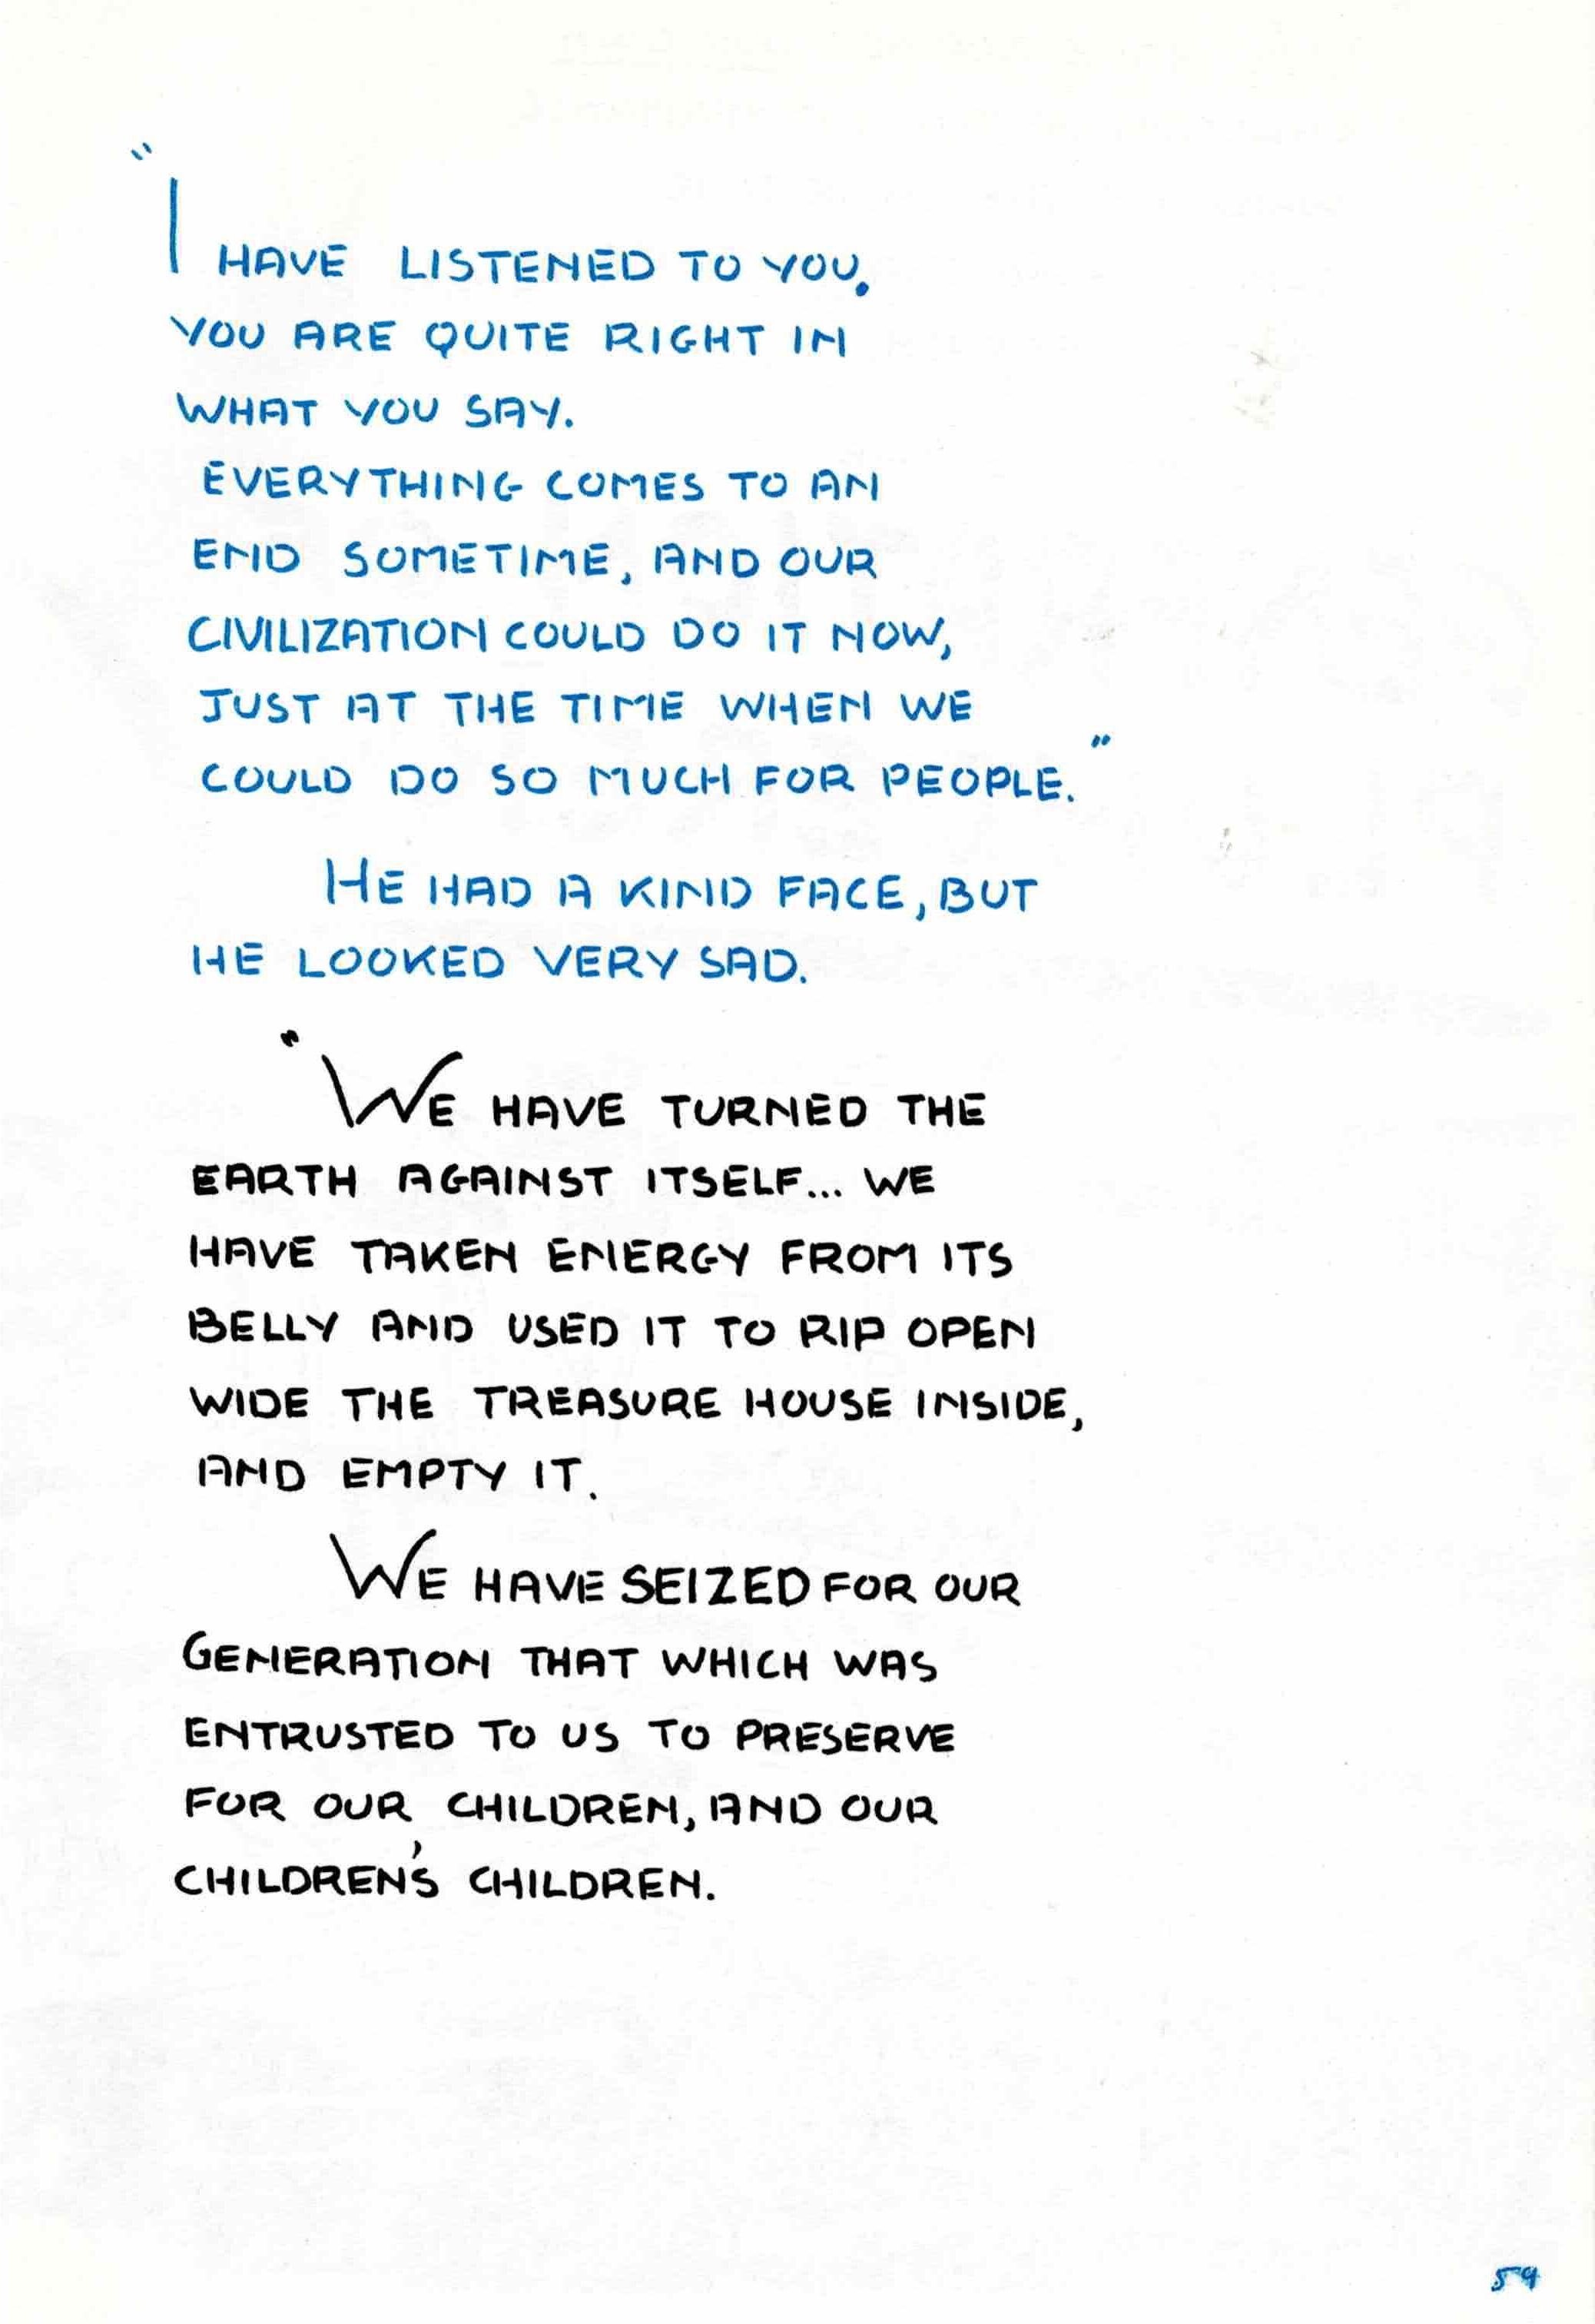 "I HAVE LISTENED TO YOU.
YOU ARE QUITE RIGHT IN
WHAT YOU SAY.
EVERYTHING COMES TO AN
END SOMETIME, AND OUR
CIVILIZATION COULD DO IT NOW,
JUST AT THE TIME WHEN WE
COULD DO SO MUCH FOR PEOPLE."
HE HAD A KIND FACE, BUT
HE LOOKED VERY SAD.
"WE HAVE TURNED THE
EARTH AGAINST ITSELF... WE
HAVE TAKEN ENERGY FROM ITS
BELLY AND USED IT TO RIP OPEN
WIDE THE TREASURE HOUSE INSIDE,
AND EMPTY IT.
WE HAVE SEIZED FOR OUR
GENERATION THAT WHICH WAS
ENTRUSTED TO US TO PRESERVE
FOR OUR CHILDREN, AND OUR
CHILDREN'S CHILDREN.
59